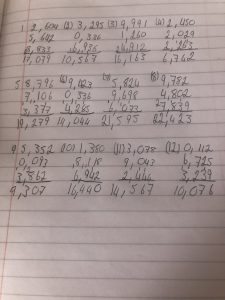 1. 2,604 (2) 3,295 (3) 9,991 (4) 2,450
5,642 0,336 1,260 2,029
8,833 6,936 4,912 2,263
17,079 10,567 16,163 6,742
5 8,796 (6) 9,423 (7) 5,824 (8) 9,782
7,106 0,336 9,698 4,802
3,377 4,285 6,073 7,839
19,279 14,044 21,595 22,423
9. 5,352 (10) 1,380 (11) 3,078 (12) 0,112
0,093 8,118 9,043 6,725
3,862 6,942 2,446 3,239
9,307 16,440 14,567 10,076